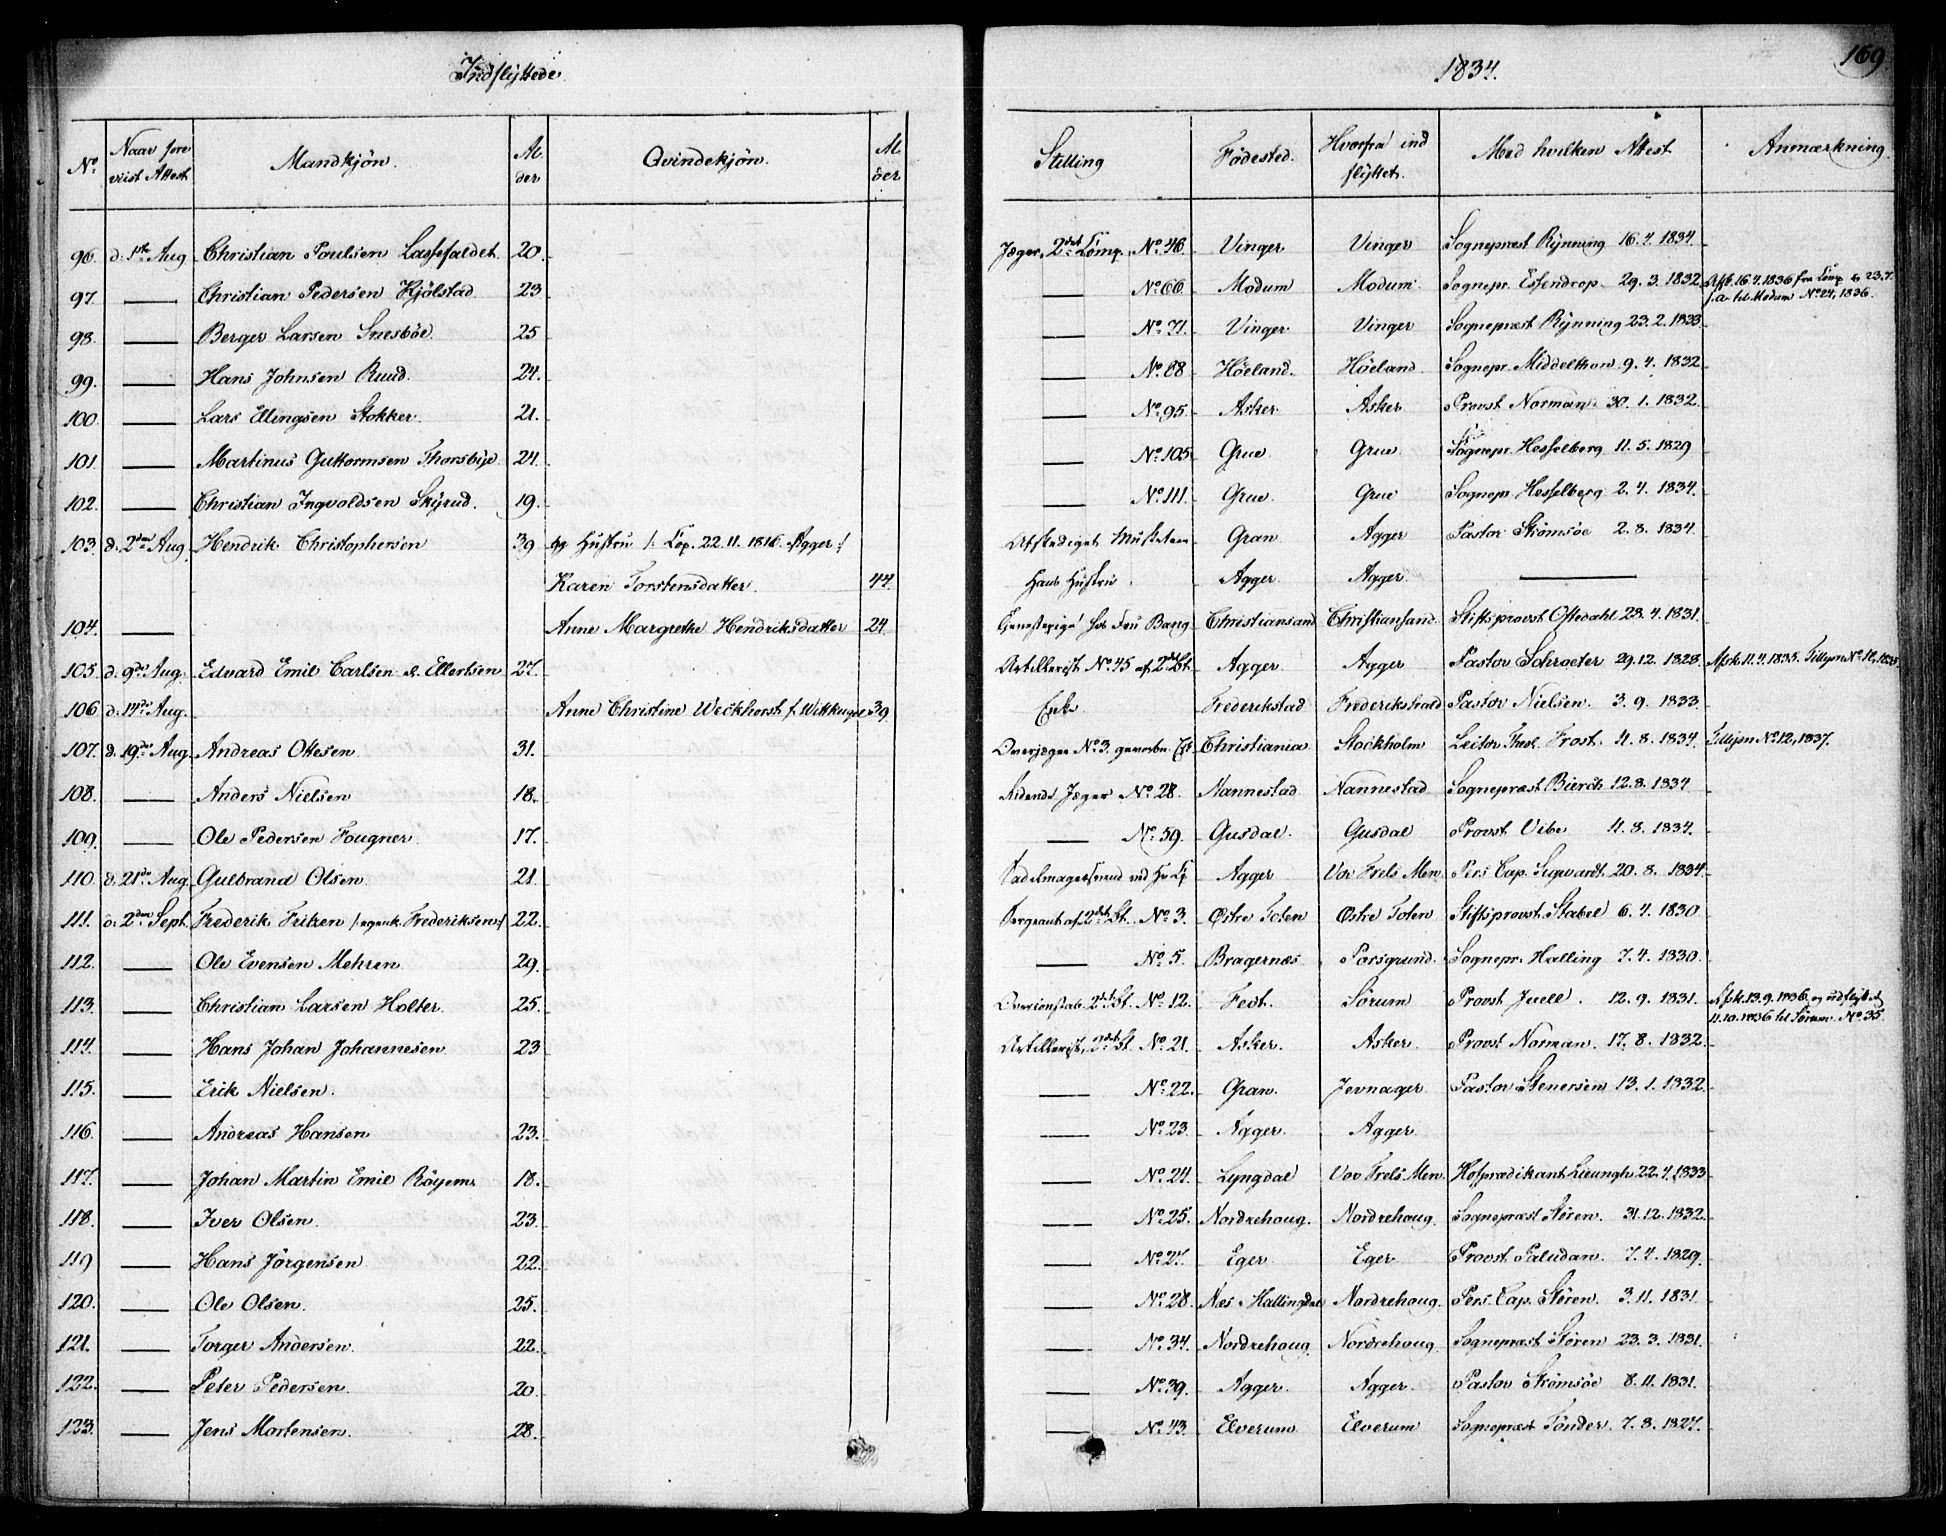 Indflyttede
1834.
169
No | Naar fore viist Attest | Mandkjön. | Al der | Qvindekjön. | Al der | Stilling | Födested. | Hvorfra ind flyttet. | Med hvilken Attest | Anmærkning.
96. | d. 1ste Aug | Christian Poulsen Lassefaldet | 20. | | | Jæger, 2det Comp. No 46. | Vinger | Vinger | Sognepræst Rynning 16. 4. 1834
97. | — | Christian Pedersen Kjölstad | 23 | | | — No 66 | Modum | Modum | Sognepr. Essendrop. 29. 3. 1832 | Afsk. 16.4.1836 fra Comp. 23.7. s.A. til Modum No 24, 1836.
98. | — | Berger Larsen Snesböe | 25 | | | — No 71. | Vinger | Vinger | Sognepræst Rynning 23. 2. 1833
99. | — | Hans Johnsen Ruud. | 24. | | | — No 88 | Höeland. | Höeland | Sognepr. Middelthon 9. 4. 1832
100. | — | Lars Ellingsen Stokker. | 21. | | | — No 95. | Asker | Asker | Provst Norman 30. 1. 1832.
101. | — | Martinus Guttormsen Thorsbye | 24 | | | — No 105 | Grue | Grue | Sognepr. Hesselberg 11. 5. 1829
102. | — | Christian Ingvoldsen Skyrud. | 19. | | | — No 111. | Grue. | Grue | Sognepr. Hesselberg 2. 4. 1834.
103. | d. 2den Aug | Hendrik Christophersen | 39 | og Hustru /: Cop. 22. 11. 1816. Agger :/ | | Afskediget Musketeer | Gran | Agger | Pastor Strömsöe 2. 8. 1834.
Karen Torstensdatter. | 44. | Hans Hustru | Agger. | Agger. | —
104. | — | | | Anne Margrethe Hendriksdatter | 24. | Tjenestepige hos Fru Bang | Christiansand | Christiansand | Stiftsprovst Oftedahl 28. 4. 1831.
105. | d. 9de Aug. | Edvard Emil Carlsen & Ellertsen | 27. | | | Artillerist No 45 af 2det Bt. | Agger | Agger | Pastor Schroeter 29. 12. 1828. | Afsk. 11. 4. 1835. Tillysn. No 12, 1835
106 | d. 14de Aug. | | | Anne Christine Weckhorst f. Wittkugel | 39. | Enke | Frederikstad | Frederikshald | Pastor Nielsen. 3. 9. 1833.
107. | d. 19de Aug. | Andreas Ottesen | 31. | | | Overjæger No 3. | Christiania | Stockholm | Lector Frost. 11. 8. 1834. | Tillysn No 12, 1837.
108. | — | Anders Nielsen | 18. | | | Ridende Jæger No 28. | Nannestad | Nannestad | Sognepræst Bierch 12. 8. 1834
109. | — | Ole Pedersen Fougner. | 17. | | | — No 59. | Gusdal. | Gusdal | Provst Vibe 11. 8. 1834.
110. | d. 21de Aug. | Gulbrand Olsen. | 21. | | | Sadelmagersvend | Agger | Vor Frels Men. | Pers. Cap. 20. 8. 1834
111. | d. 2den Sept. | Frederik Fritzen /: egentl. Frederiksen :/ | 22. | | | Sergeant af 2det Bt. No 3. | Östre Toten | Östre Toten | Stiftsprovst Stabel 6. 4. 1830
112. | — | Ole Evensen Mehren | 29. | | | — No 5. | Bragernæs | Porsgrund. | Sognepr. Halling 7. 4. 1830.
113. | — | Christian Larsen Holter. | 25. | | | Overconstab. 2det Bt. No 12. | Fedt. | Sörum | Provst Juell. 12. 9. 1831. | Afsk. 13. 9. 1836 og udflyttet 11. 10. 1836 til Sörum No 35.
114. | — | Hans Johan Johannesen | 23 | | | Artillerist, 2det Bt. No 21. | Asker. | Asker | Provst Norman. 17. 8. 1832.
115. | — | Erik Nielsen. | | | | — No 22. | Gran. | Jevnager | Pastor Stenersen 13. 1. 1832
116. | — | Andreas Hansen | 23. | | | — No 23. | Agger. | Agger.
117. | — | Johan Martin Emil Röyem | 18. | | | — No 24. | Lyngdal | Vor Frels Men. | Hofprædikant Lieungh 22. 4. 1833
118. | — | Iver Olsen. | 23. | | | — No 25. | Nordrehoug. | Nordrehoug. | Sognepræst Stören. 31. 12. 1832.
119 | — | Hans Jörgensen | 22. | | | — No 27. | Eger. | Eger | Provst Paludan. 7. 4. 1829.
120. | — | Ole Olsen. | 25. | | | — No 28. | Næs i Hallingdal | Nordrehoug. | Pers. Cap. Stören. 3. 11. 1831
121. | — | Torger Andersen. | 22. | | | — No 34. | Nordrehoug. | Nordrehoug. | Sognepræst Stören 23. 3. 1831.
122. | — | Peter Pedersen. | 20. | | | — No 39. | Agger. | Agger. | Pastor Strömsöe 8. 11. 1831.
123. | — | Jens Mortensen. | 28. | | | — No 43. | Elverum | Elverum | Sognepræst Tönder. 7. 8. 1827.